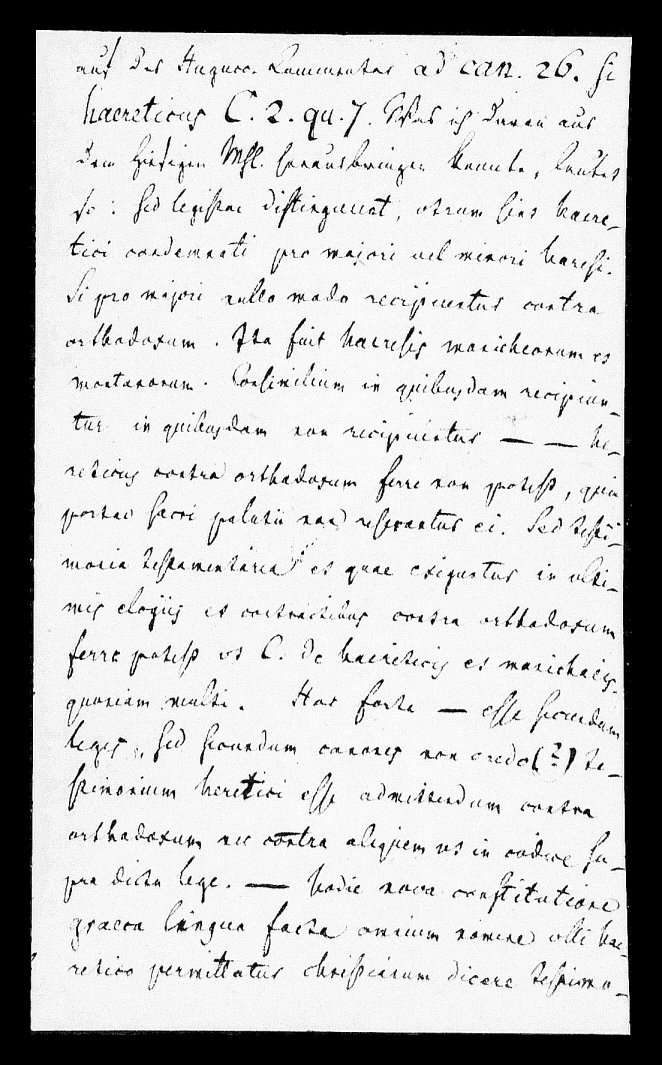 aus des Hugucc. Kommentar ad can. 26. Si
haereticus C. 2. qu. 7. Was ich davon aus
dem hiesigen Mst. herausbringen konnte, lautet
so: Sed legistae distinguunt, utrum sint haere-
tici condemnati pro majori vel minori haeresi.
Si pro majori nullo modo recipiuntur contra
orthodoxum. Ita fuit haeresis manicheorum et
montanorum. Consimilium in quibusdam recipiun-
tur in quibusdam non recipiuntur — — he-
reticus contra orthodoxum ferre non potest, quia
portae sacri palatii non reserantur ei. Sed testi-
monia testamentaria et quae exiguntur in ulti-
mis elogiis et contractibus contra orthodoxum
ferre potest ut C. de haereticis et manichaeis.
quoniam multi. Hoc forte — esse secundum
leges, sed secundum canones non credo (?) te-
stimonium heretici esse admittendum contra
orthodoxum nec contra aliquem ut in codice su-
pra dicta lege. — hodie nova constitutione
graeca lingua facta omnium nomine ulli hae-
retico permittatur christianum dicere testimo-